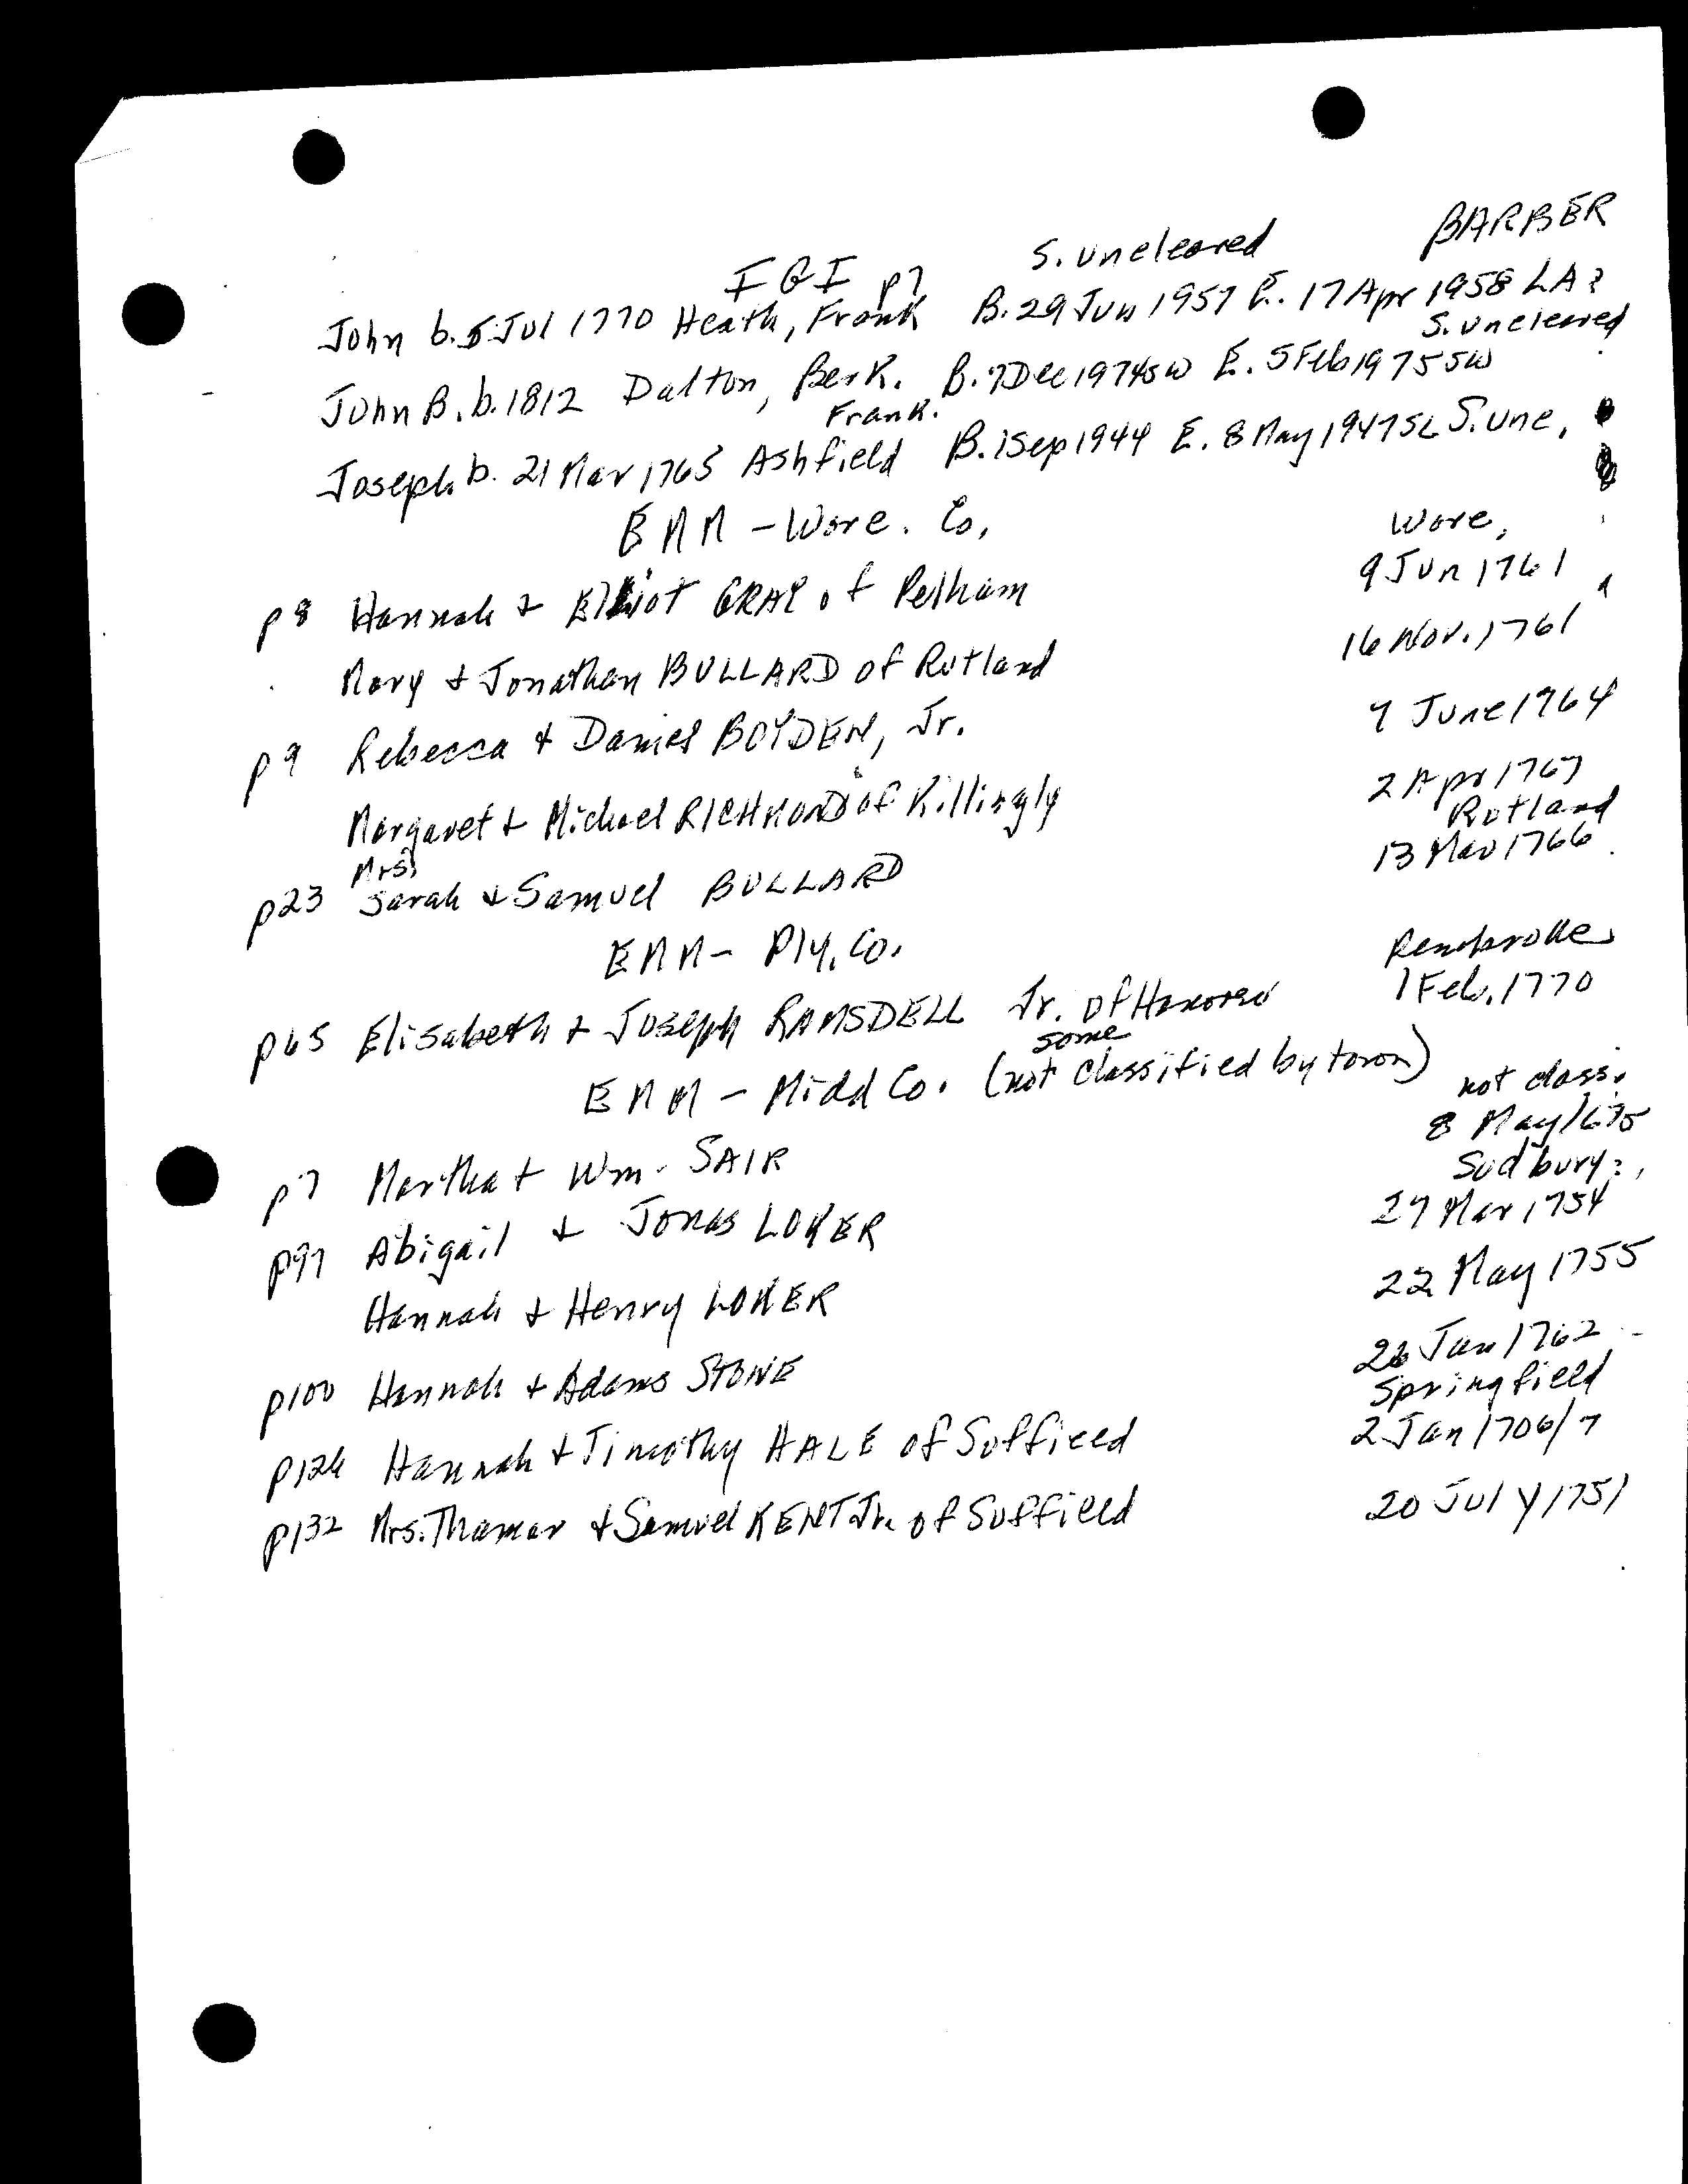 BARBER
IGI p7 S. uncleared
John b. 5 Jul 1770 Heath, Frank B. 29 Jun 1957 E. 17 Apr 1958 LA?
S. uncleared
John B. b. 1812 Dalton, Berk. B. 7 Dec 1974 SW E. 5 Feb 1975 SW
Frank.
Joseph b. 21 Mar 1765 Ashfield B. 1 Sep 1944 E. 8 May 1947 SL S. unc.
EMM - Worc. Co,
Worc,
p8 Hannah + Elliot GRAY of Pelham 9 Jun 1761
Mary + Jonathan BULLARD of Rutland 16 Nov. 1761
p9 Rebecca + Daniel BOYDEN, Jr. 7 June 1764
Margaret + Michael RICHMOND of Killingly 2 Apr 1767
Rutland
Mrs.
p23 Sarah + Samuel BULLARD 13 Mar 1766
EMM - Ply. Co.
Pembroke
p65 Elisabeth + Joseph RAMSDELL Jr. of Hanover 1 Feb. 1770
some
EMM - Midd Co. (not classified by town)
not class.
p7 Martha + Wm. SAIR 8 May 1675
Sudbury?
p97 Abigail + Jonas LOKER 27 Mar 1754
Hannah + Henry LOKER 22 May 1755
p100 Hannah + Adams STONE 26 Jan 1762
Springfield
p126 Hannah + Timothy HALE of Suffield 2 Jan 1706/7
p132 Mrs. Thamar + Samuel KENT Jr. of Suffield 20 July 1751